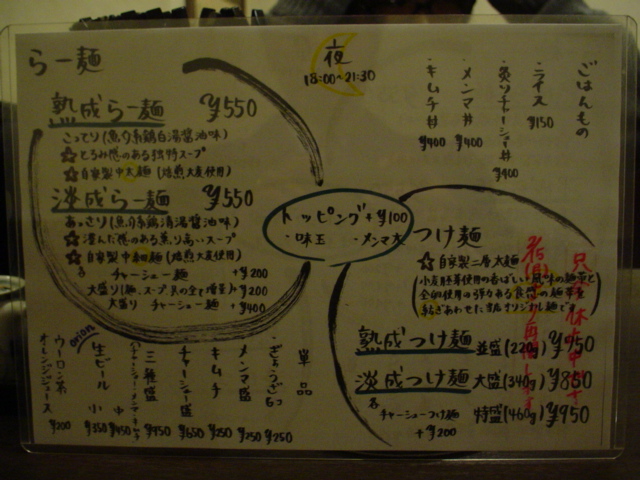 らー麺
夜
18:00〜21:30
熟成らー麺 ¥550
こってり(魚介系鶏白湯醤油味)
☆とろみ感のある独特スープ
☆自家製中太麺(焙煎大麦使用)
淡成らー麺 ¥550
あっさり(魚介系鶏清湯醤油味)
☆澄んだ感のある薫り高いスープ
☆自家製中細麺(焙煎大麦使用)
各 チャーシュー麺 +¥200
大盛り(麺、スープ、具の全て増量) +¥200
大盛り チャーシュー麺 +¥400
ごはんもの
・ライス ¥150
・炙りチャーシュー丼 ¥400
・メンマ丼 ¥400
・キムチ丼 ¥400
トッピング +¥100
・味玉 ・メンマ大
つけ麺
☆自家製二層太麺
(小麦胚芽使用の香ばしい風味の麺帯と
全卵使用の弾力ある食感の麺帯を
粘ぎあわせた オリジナル麺です
熟成つけ麺 並盛(220g) ¥750
淡成つけ麺 大盛(340g) ¥850
各 チャーシューつけ麺 特盛(460g) ¥950
+¥200
単品
・ぎょうざ6コ ¥250
メンマ盛 ¥250
キムチ ¥250
チャーシュー盛 ¥650
三種盛 ¥450
(チャーシュー・メンマ・キムチ)
orion
生ビール 中 ¥450
小 ¥350
ウーロン茶
オレンジジュース ¥200